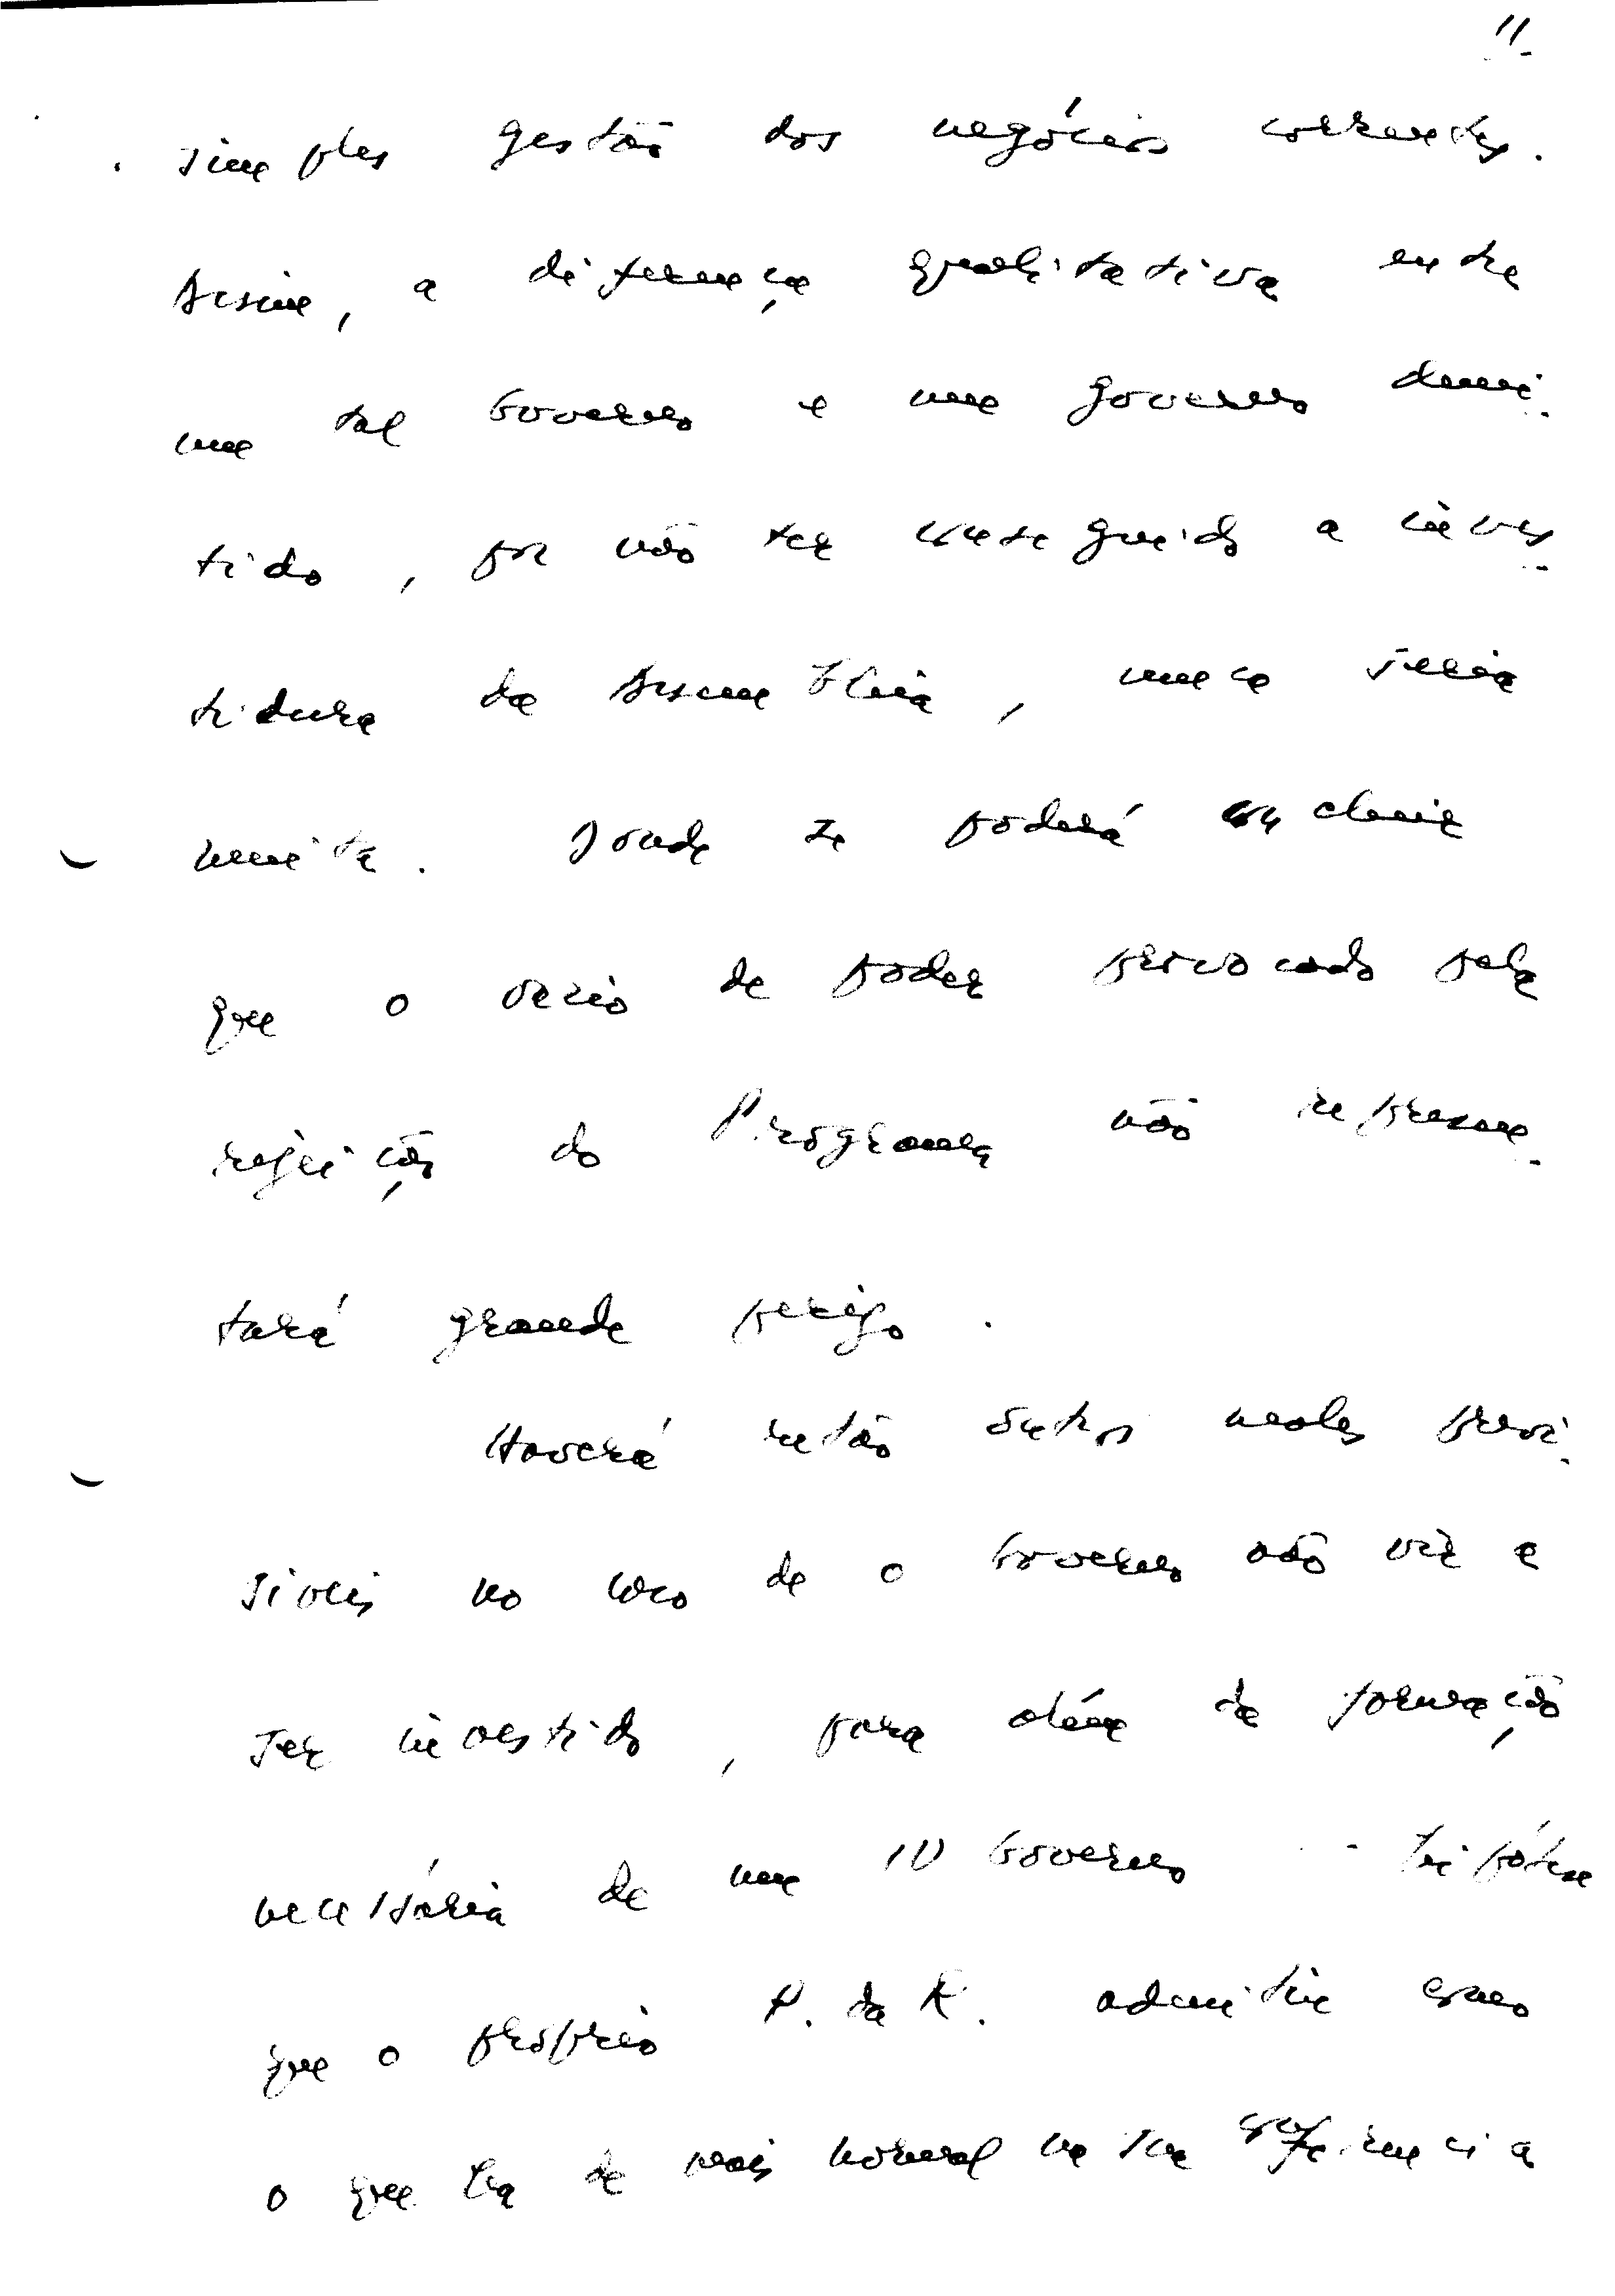 11.
simples gestão dos negócios correntes.
Assim, a diferença qualitativa entre
um tal Governo e um governo demi-
tido, por não ter conseguido a inves-
tidura da Assembleia, nunca seria
muita. Donde se poderá concluir
que o vazio de poder provocado pela
rejeição do Programa não represen-
tará grande perigo.
Haverá então outros males previ-
síveis no caso de o Governo não vir a
ser investido, para além da formação
necessária de um IV Governo - hipótese
que o próprio P. da R. admitiu como
o que há de mais normal na sua conferência